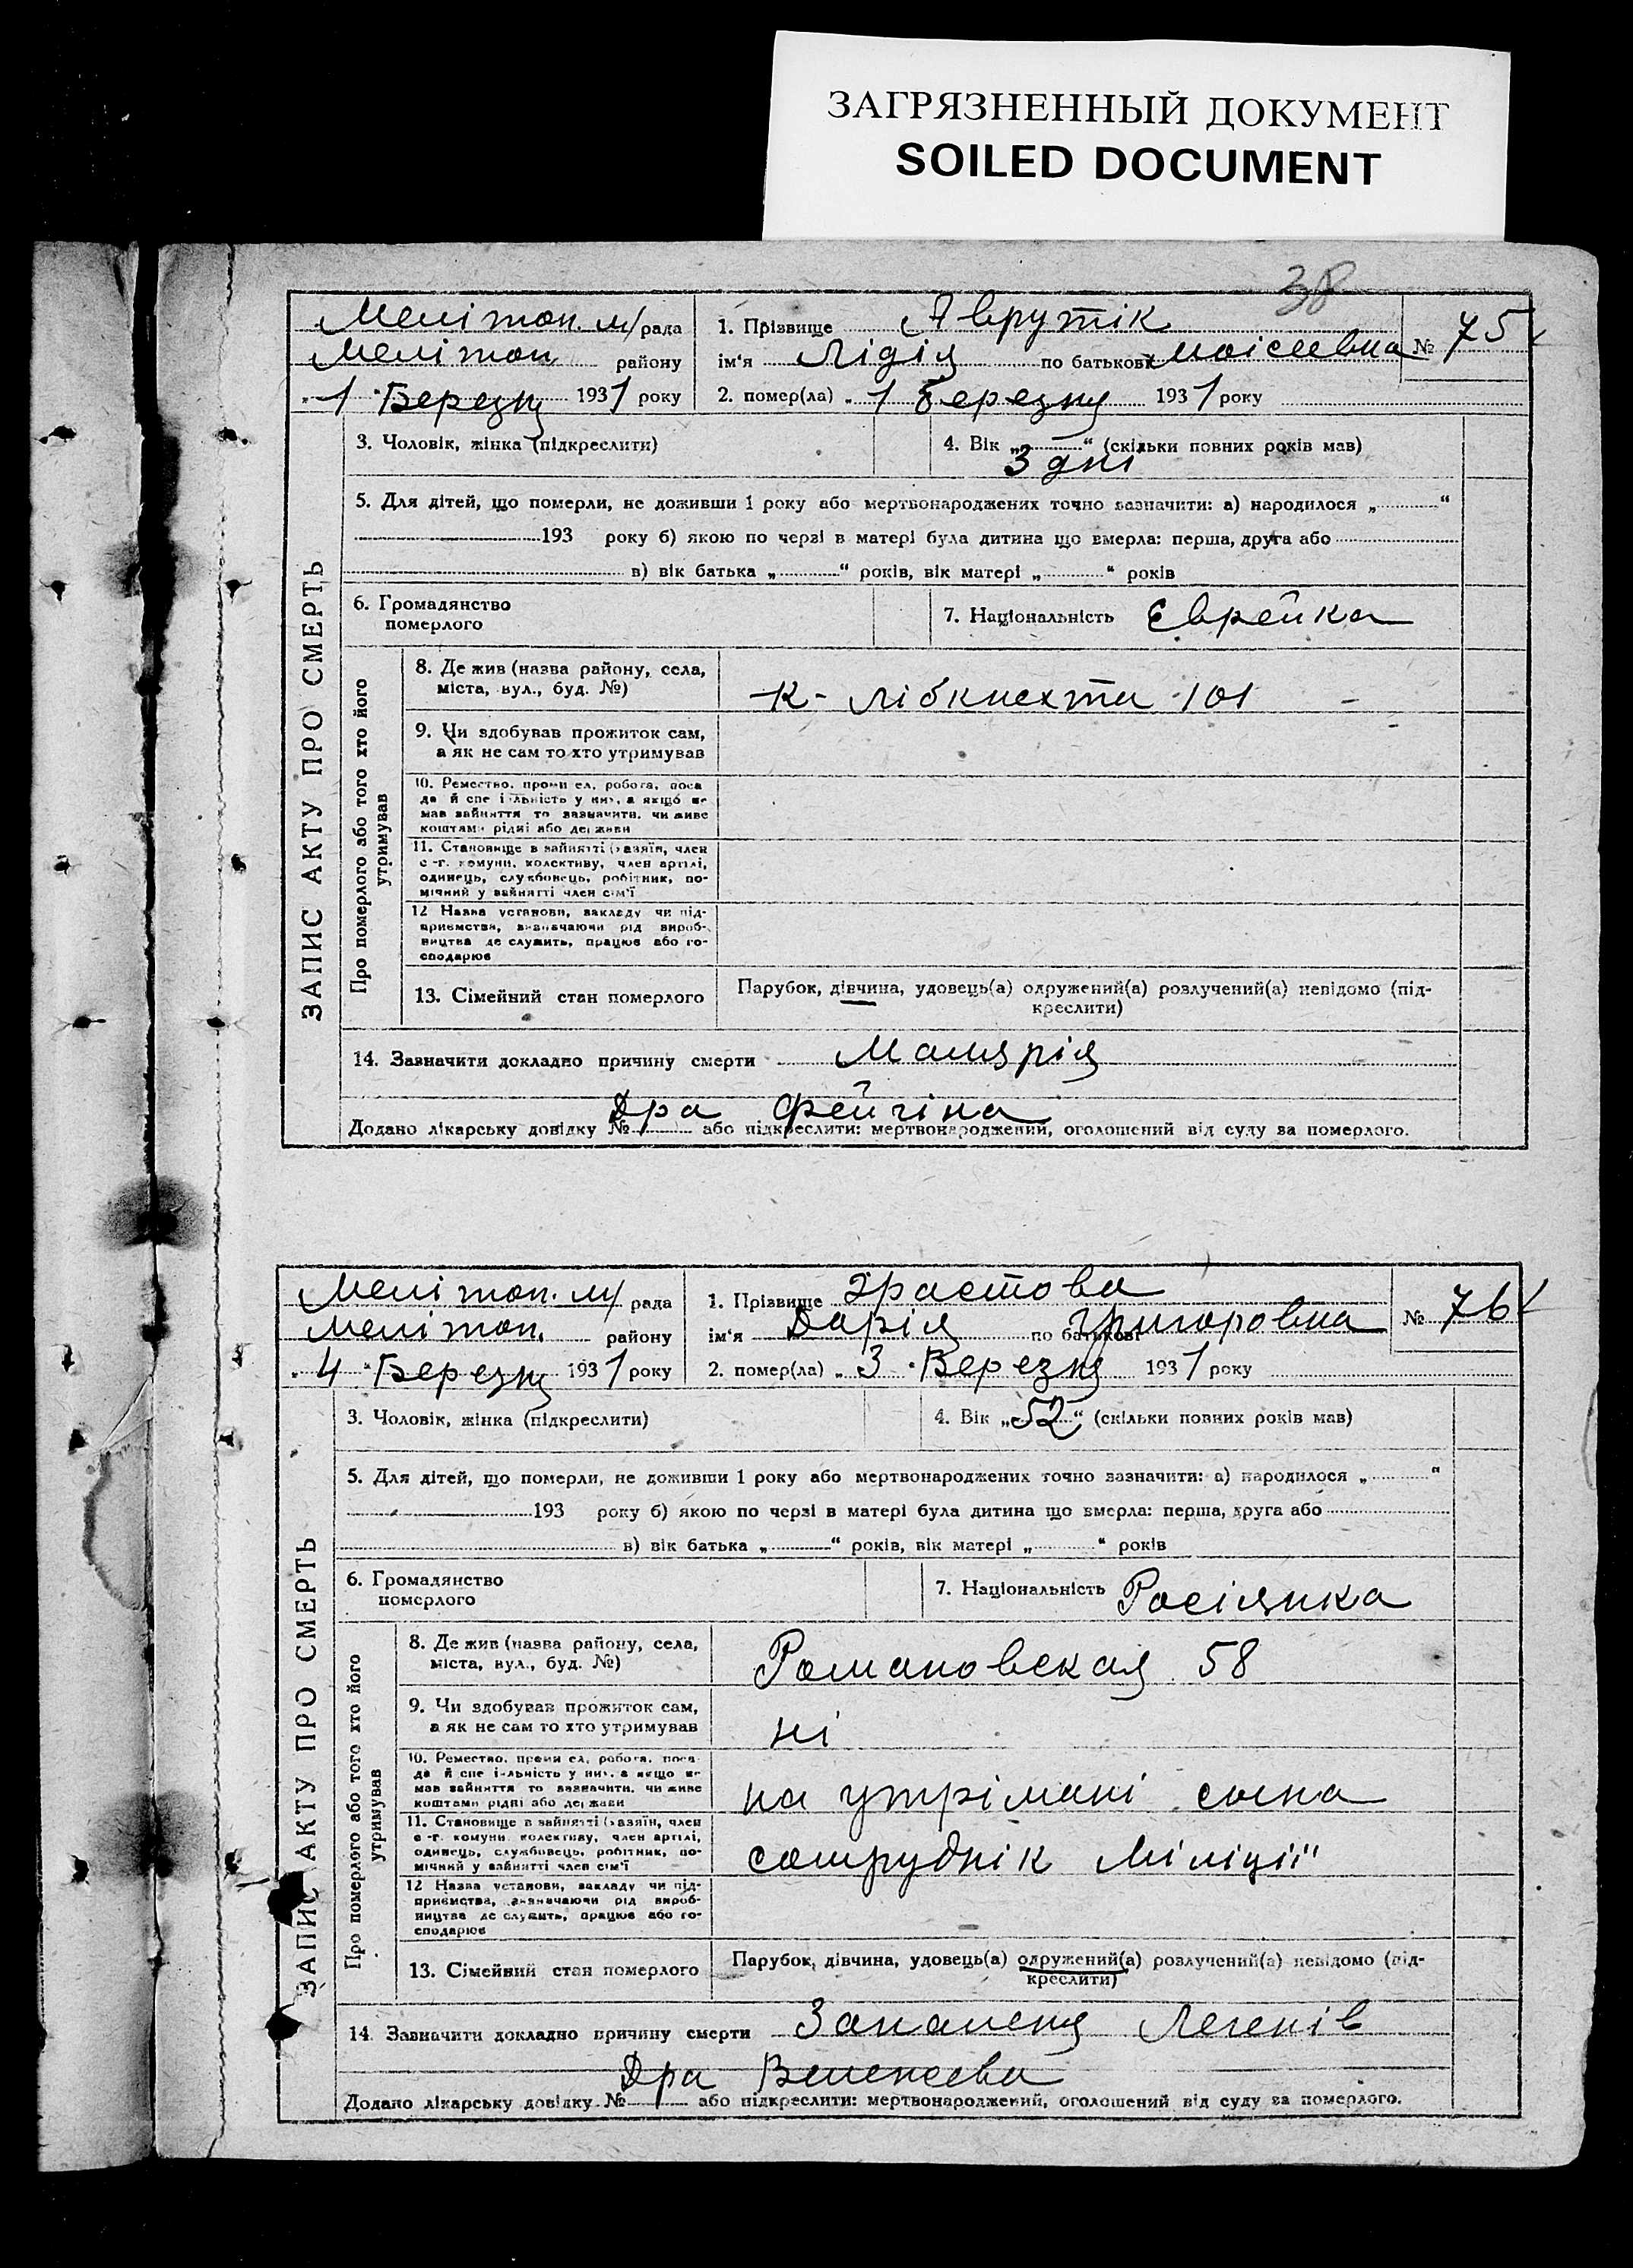 ЗАГРЯЗНЕННЫЙ ДОКУМЕНТ
SOILED DOCUMENT
38
Меліmоп. м/рада
Меліmоп району
„1" Березня 1931 року
1. Прізвище Аврутік
ім'я Лідія по батькові Моісеевна
№ 75
2. помер(ла) „1 березня 1931 року
ЗАПИС АКТУ ПРО СМЕРТЬ
3. Чоловік, жінка (підкреслити)
4. Вік „ " (скільки повних років мав)
3 дні
5. Для дітей, що померли, не доживши 1 року або мертвонароджених точно зазначити: а) народилося „ "
193 року б) якою по черзі в матері була дитина що вмерла: перша, друга або
в) вік батька „ " років, вік матері „ " років
6. Громадянство
померлого
7. Національність Єврейка
Про померлого або того хто його
утримував
8. Де жив (назва району, села,
міста, вул., буд. №)
К- Лібкнехта 101
9. Чи здобував прожиток сам,
а як не сам то хто утримував
10. Ремество, промисел, робота, поса
да й спеціальність у них, а якщо не
мав зайняття то зазначити, чи живе
коштами рідні або держави
11. Становище в зайнятті (хазяїн, член
с-г. комуни, колективу, член артілі,
одинець, службовець, робітник, по-
мічний у зайнятті член сім'ї
12 Назва установи, закладу чи під-
приємства, визначаючи рід вироб-
ництва де служить, працює або го-
сподарює
13. Сімейний стан померлого
Парубок, дівчина, удовець(а) одружений(а) розлучений(а) невідомо (під-
креслити)
14. Зазначити докладно причину смерти Малярія
Дра Фейгіна
Додано лікарську довідку № або підкреслити: мертвонароджений, оголошений від суду за померлого.
Меліmоп. м/ рада
Меліmоп. району
„4" Березня 1931 року
1. Прізвище Храстова
ім'я Дарія по батькові Григоровна
№ 76
2. помер(ла) „3" Березня 1931 року
ЗАПИС АКТУ ПРО СМЕРТЬ
3. Чоловік, жінка (підкреслити)
4. Вік „52" (скільки повних років мав)
5. Для дітей, що померли, не доживши 1 року або мертвонароджених точно зазначити: а) народилося „ "
193 року б) якою по черзі в матері була дитина що вмерла: перша, друга або
в) вік батька „ " років, вік матері „ " років
6. Громадянство
померлого
7. Національність Росіянка
Про померлого або того хто його
утримував
8. Де жив (назва району, села,
міста, вул., буд. №)
Романовская 58
9. Чи здобував прожиток сам,
а як не сам то хто утримував
ні
10. Ремество, промисел, робота, поса
да й спеціальність у них, а якщо не
мав зайняття то зазначити, чи живе
коштами рідні або держави
на утрімані сина
11. Становище в зайнятті (хазяїн, член
с-г. комуни, колективу, член артілі,
одинець, службовець, робітник, по-
мічний у зайнятті член сім'ї
сотруднік Міліції
12 Назва установи, закладу чи під-
приємства, визначаючи рід вироб-
ництва де служить, працює або го-
сподарює
13. Сімейний стан померлого
Парубок, дівчина, удовець(а) одружений(а) розлучений(а) невідомо (під-
креслити)
14. Зазначити докладно причину смерти Запаленя Легенів
Дра
Додано лікарську довідку № або підкреслити: мертвонароджений, оголошений від суду за померлого.